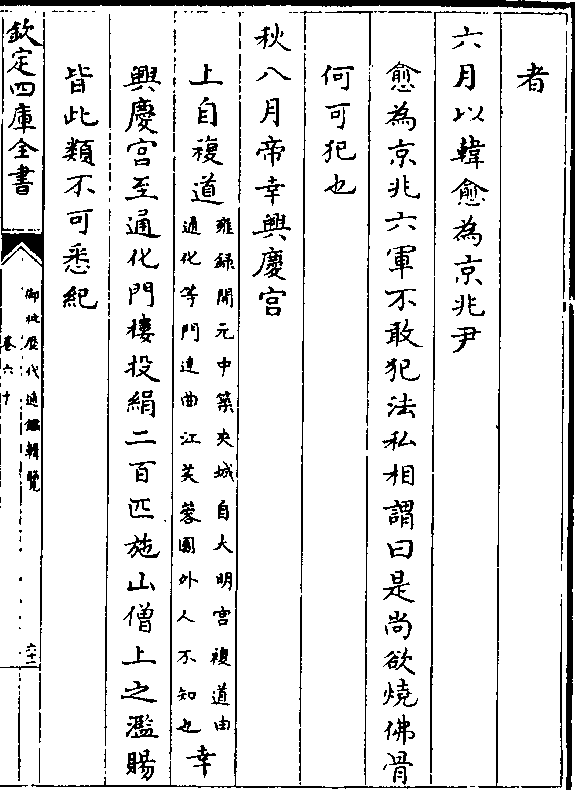 者
六月以韓愈為京兆尹
愈為京兆六軍不敢犯法私相謂曰是尚欲燒佛骨
何可犯也
秋八月帝幸興慶宮
上自複道
雍録開元中築夾城自大明宮複道由
通化等門達曲江芙蓉園外人不知也
幸
興慶宮至通化門樓投絹二百匹施山僧上之濫賜
皆此類不可悉紀
欽定四庫全書
御批歷代通鑑輯覽
卷六十
六十二